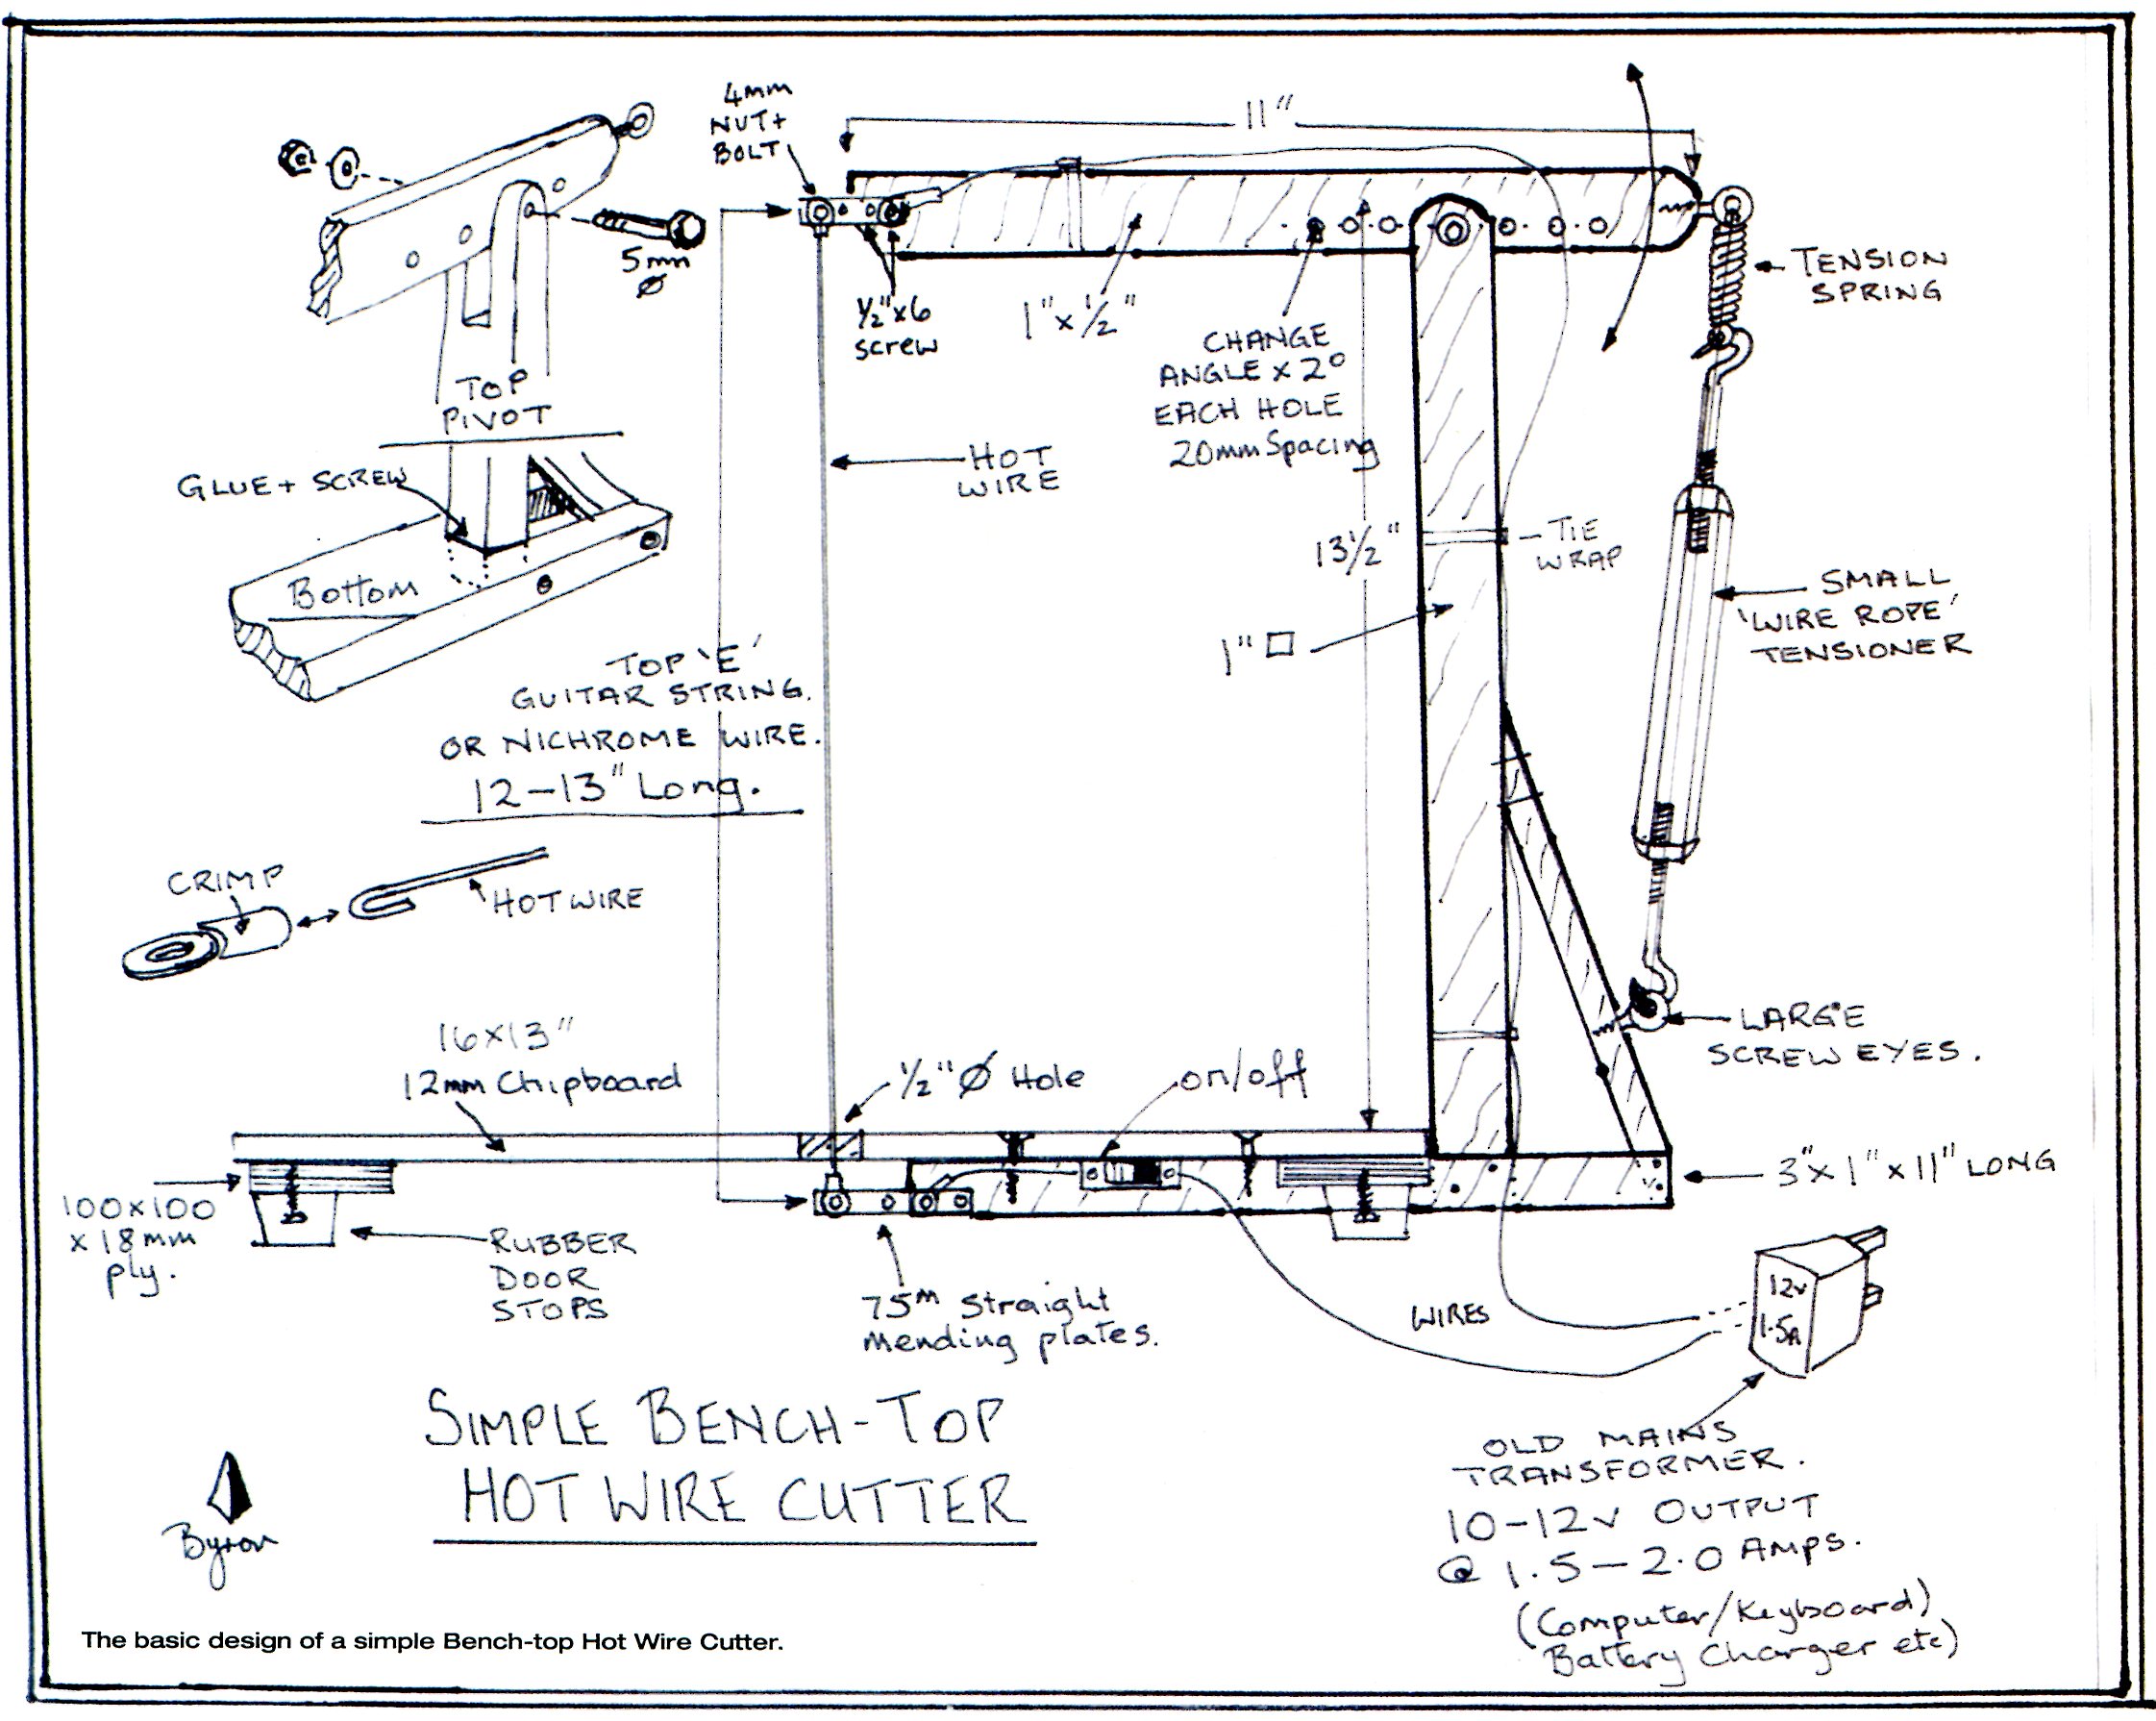 4mm
NUT+
BOLT
11"
5mm
Ø
TENSION
SPRING
½"x6
screw
1"x½"
CHANGE
ANGLE x 2°
EACH HOLE
20mm Spacing
TOP
PIVOT
GLUE + SCREW
HOT
WIRE
13½"
TIE
WRAP
Bottom
SMALL
'WIRE ROPE'
TENSIONER
1" □
TOP 'E'
GUITAR STRING.
OR NICHROME WIRE.
12-13" Long.
CRIMP
HOT WIRE
LARGE
SCREW EYES.
16x13"
12mm Chipboard
½" Ø Hole
on/off
3"x 1" x 11" LONG
100x100
x 18mm
ply.
RUBBER
DOOR
STOPS
75m Straight
Mending plates.
WIRES
12v
1.5A
SIMPLE BENCH-TOP
HOT WIRE CUTTER
OLD MAINS
TRANSFORMER.
10-12v OUTPUT
@ 1.5-2.0 AMPS.
(Computer/Keyboard)
Battery Charger etc)
Byron
The basic design of a simple Bench-top Hot Wire Cutter.